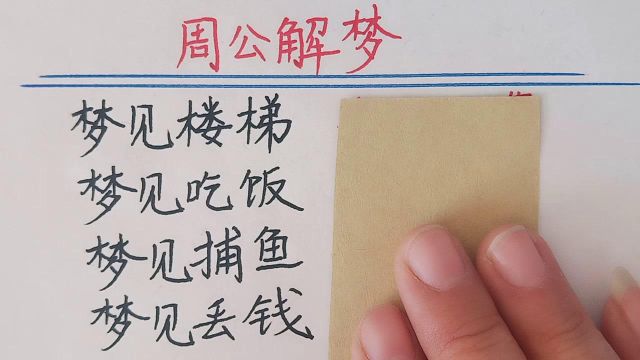 周公解梦
梦见楼梯
梦见吃饭
梦见捕鱼
梦见丢钱